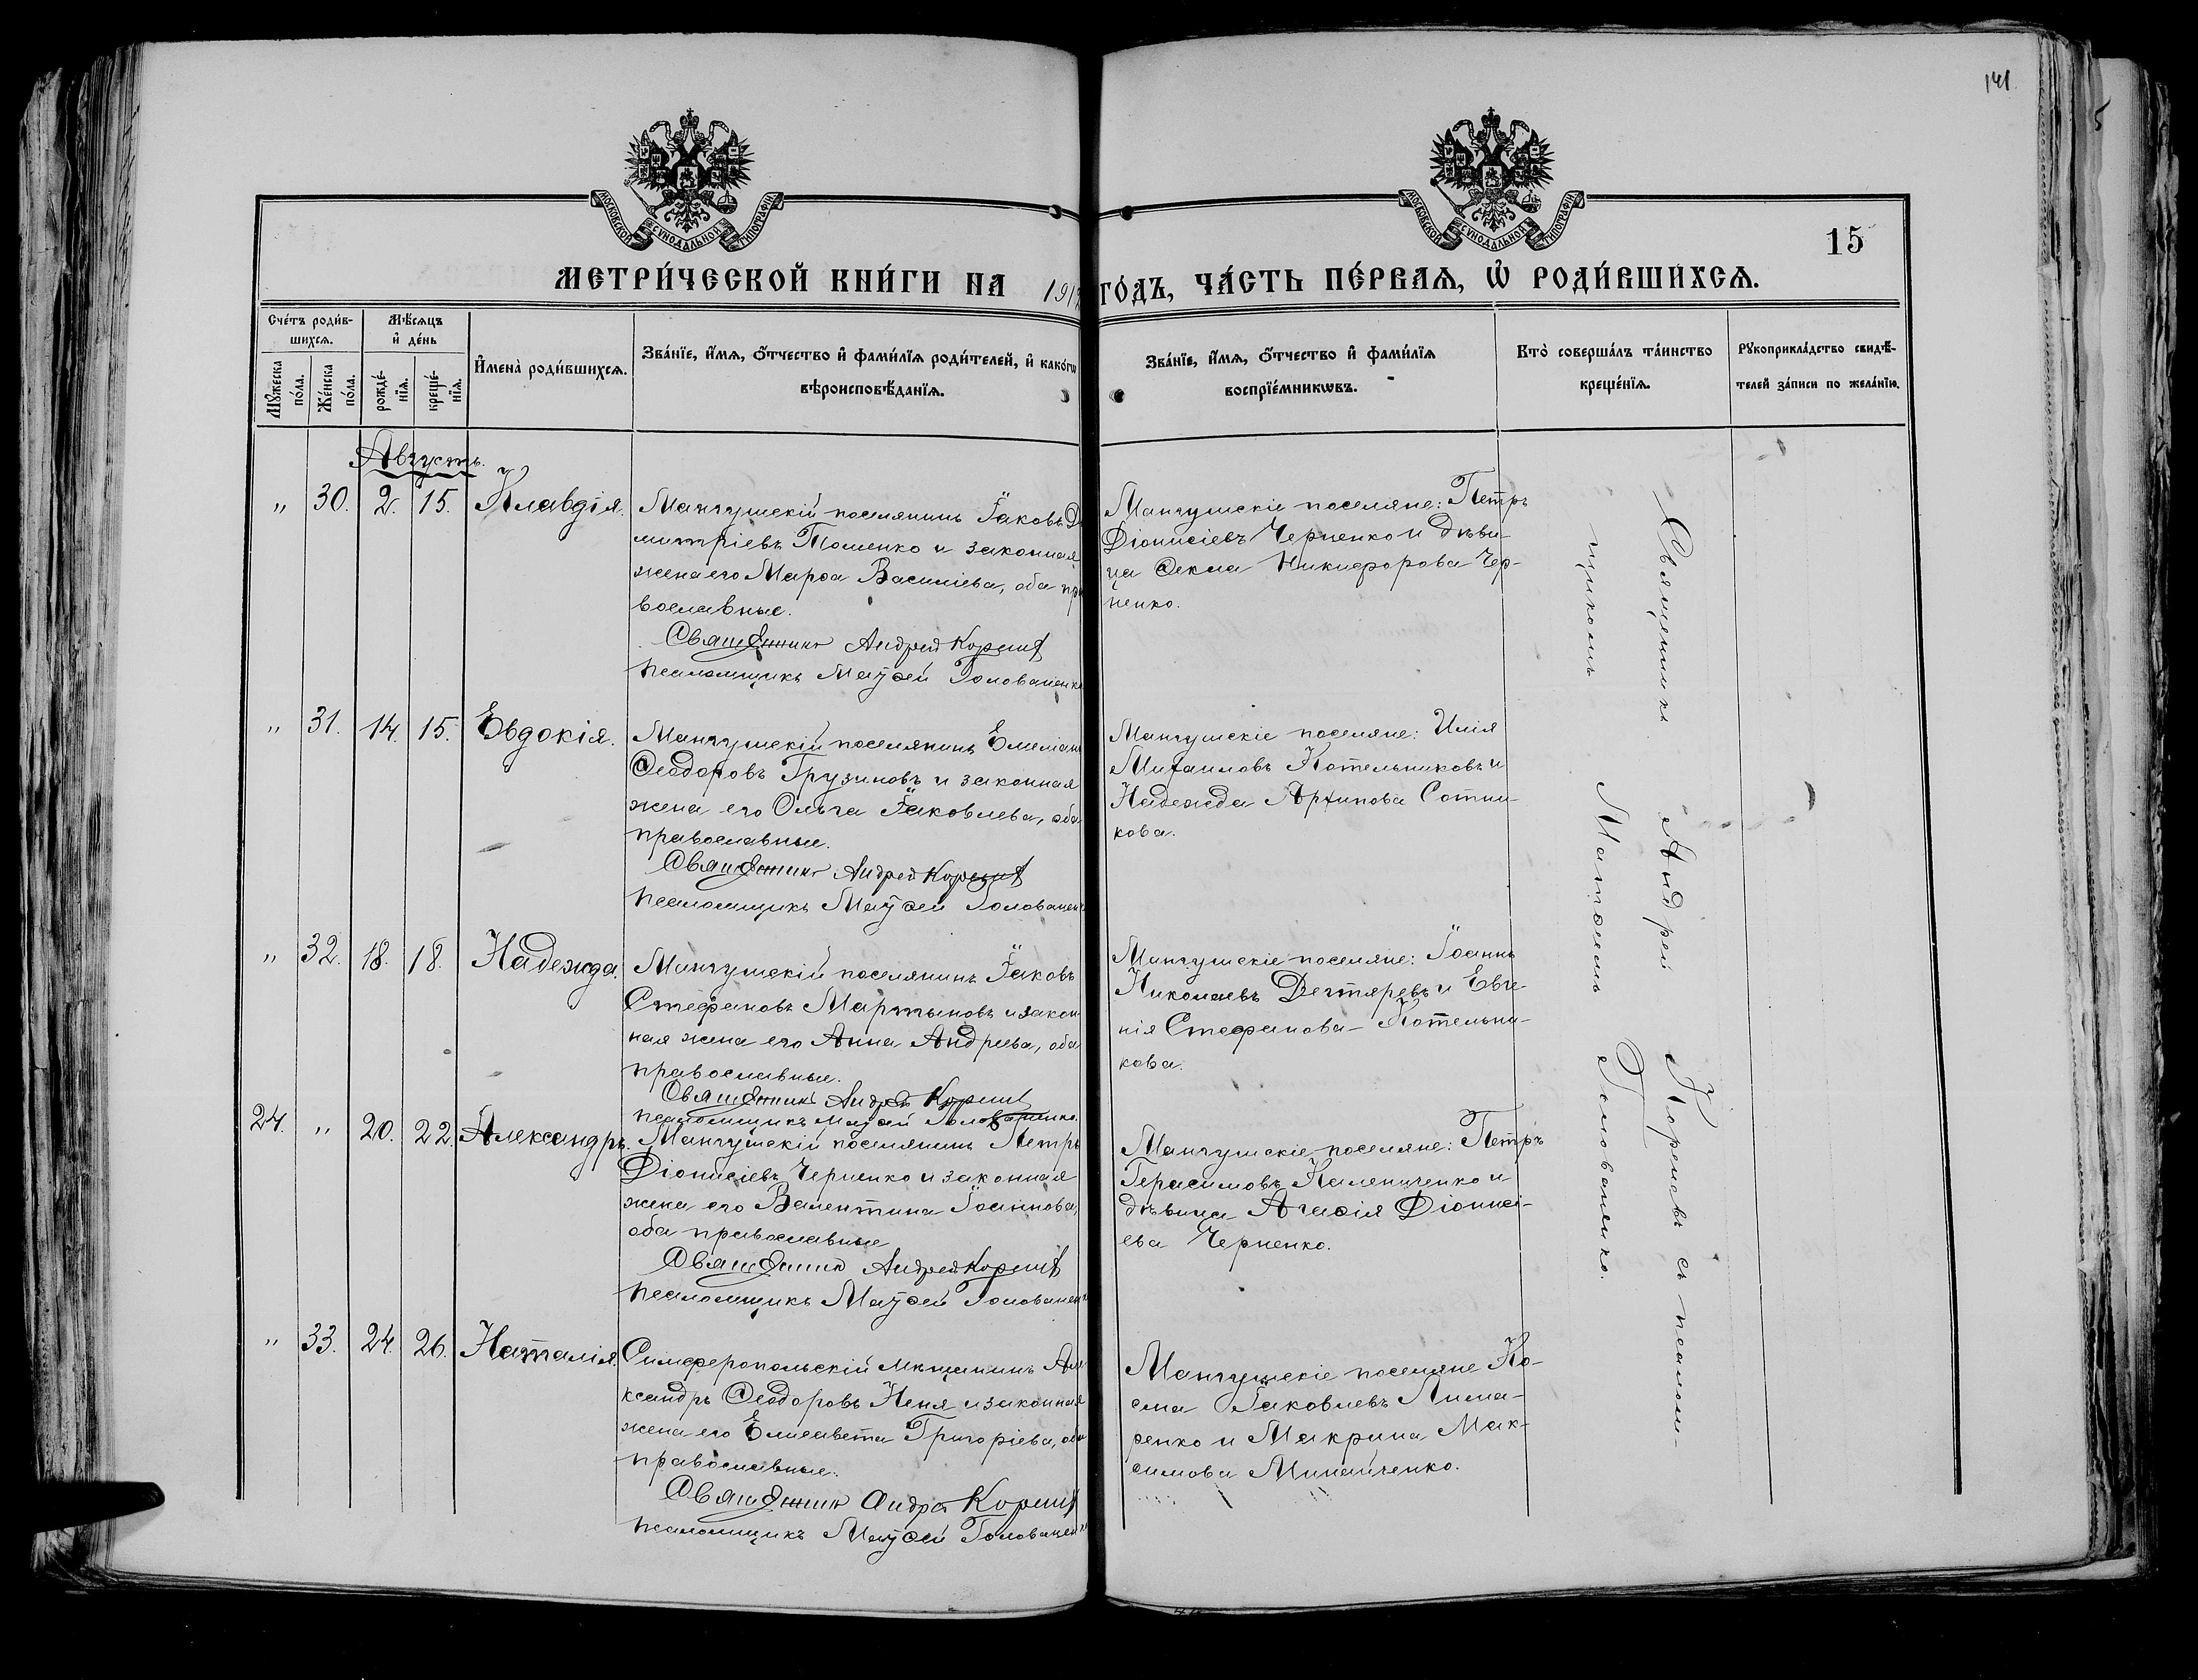 141
5
МОСКОВСКОЙ СѴНОДАЛЬНОЙ ТИПОГРАФІИ
МОСКОВСКОЙ СѴНОДАЛЬНОЙ ТИПОГРАФІИ
15
МЕТРИ́ЧЕСКОЙ КНИ́ГИ НА 191 ГО́ДЪ, ЧА́СТЬ ПЕ́РВАѦ, Ѽ РОДИ́ВШИХСѦ.
Сче́тъ роди́в-
шихсѧ.
Мꙋ́жеска по́ла.
Же́нска по́ла.
Мѣ́сѧцъ
и҆ де́нь
рожде́-
нїѧ.
креще́-
нїѧ.
И҆мена̀ роди́вшихсѧ.
Зва́нїе, и҆́мѧ, ѻ҆́тчество и҆ фами́лїѧ роди́телей, и҆ како́гѡ
вѣроисповѣ́данїѧ.
Зва́нїе, и҆́мѧ, ѻ҆́тчество и҆ фами́лїѧ
воспрїе́мникѡвъ.
Кто̀ соверша́лъ та́инство
креще́нїѧ.
Рꙋкоприкла́дство свидѣ́-
телей за́писи по жела́нїю.
Августъ.
" 30. 2. 15. Клавдія.
Мангушскій поселянинъ Іаковъ Ди
митріевъ Томенко и законная
жена его Марѳа Василіева, оба пра
вославные.
Священникъ Андрей Кореневъ
Псаломщикъ МатѳейГолованенко
Мангушскіе поселяне: Петръ
Діонисіевъ Черненко и дѣви-
ца Ѳекла Никифорова Чер-
ненко.
" 31. 14. 15. Евдокія.
Мангушскій поселянинъ Емеліанъ
Ѳеодоровъ Грузиновъ и законная
жена его Ольга Іаковлева, оба
православные.
Священникъ Андрей Кореневъ
Псаломщикъ Матѳей Голованенко
Мангушскіе поселяне: Илія
Михаиловъ Котельниковъ и
Надежда Архипова Сотни-
кова.
" 32. 18. 18. Надежда.
Мангушскій поселянинъ Іаковъ
Стефановъ Мартыновъ и закон
ная жена его Анна Андреева, оба
православные.
Священникъ Андрей Кореневъ
Псаломщикъ Матѳей Голованенко.
Мангушскіе поселяне: Іоаннъ
Николаевъ Дегтяревъ и Евге-
нія Стефанова Котельни-
кова.
24. " 20. 22. Александръ.
Мангушскій поселянинъ Петръ
Діонисіевъ Черненко и законная
жена его Валентина Іоаннова,
оба православные
Священникъ Андрей Кореневъ
Псаломщикъ Матѳей Голованенко
Мангушскіе поселяне: Петръ
Герасимовъ Калениченко и
дѣвица Агаѳія Діонисі-
ева Черненко.
" 33. 24. 26. Наталія.
Симферопольскій мѣщанинъ Але
ксандръ Ѳеодоровъ Неня и законная
жена его Елисавета Григоріева, оба
православные.
Священникъ Андрей Кореневъ
Псаломщикъ Матѳей Голованенко
Мангушскіе поселяне Ко-
сма Іаковлевъ Лима-
ренко и Макрина Мак-
симова Минайченко.
Священникъ Андрей Кореневъ съ псалом-
щикомъ Матѳеемъ Голованенко.